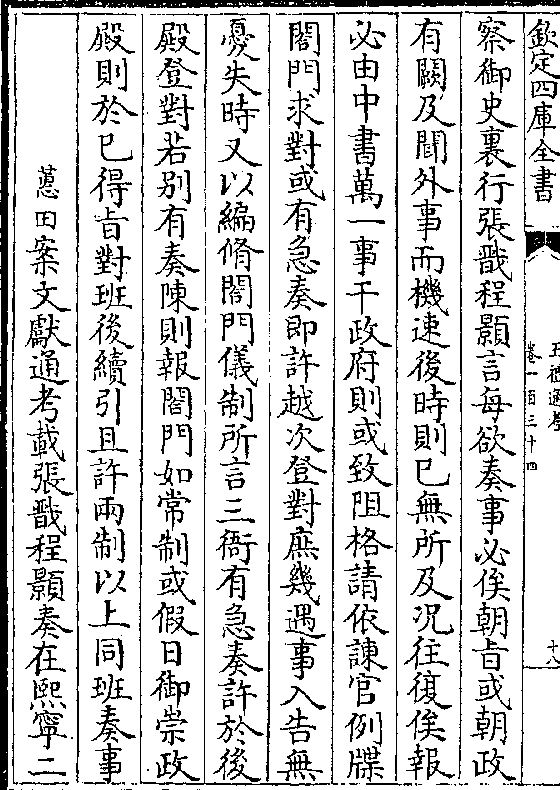 欽定四庫全書
五禮通考
卷一百三十四
十八
察御史裏行張戩程顥言每欲奏事必俟朝旨或朝政
有闕及聞外事而機速後時則已無所及况往復俟報
必由中書萬一事干政府則或致阻格請依諫官例牒
閤門求對或有急奏即許越次登對庶幾遇事入告無
憂失時又以編脩閤門儀制所言三衙有急奏許於後
殿登對若别有奏陳則報閤門如常制或假日御崇政
殿則於已得旨對班後續引且許兩制以上同班奏事
蕙田案文獻通考載張戩程顥奏在熙寧二